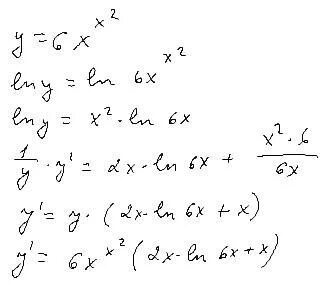 y = 6x^{x^2}
ln y = ln 6x^{x^2}
ln y = x^2 · ln 6x
\frac{1}{y} · y' = 2x · ln 6x + \frac{x^2 · 6}{6x}
y' = y · (2x · ln 6x + x)
y' = 6x^{x^2} (2x · ln 6x + x)